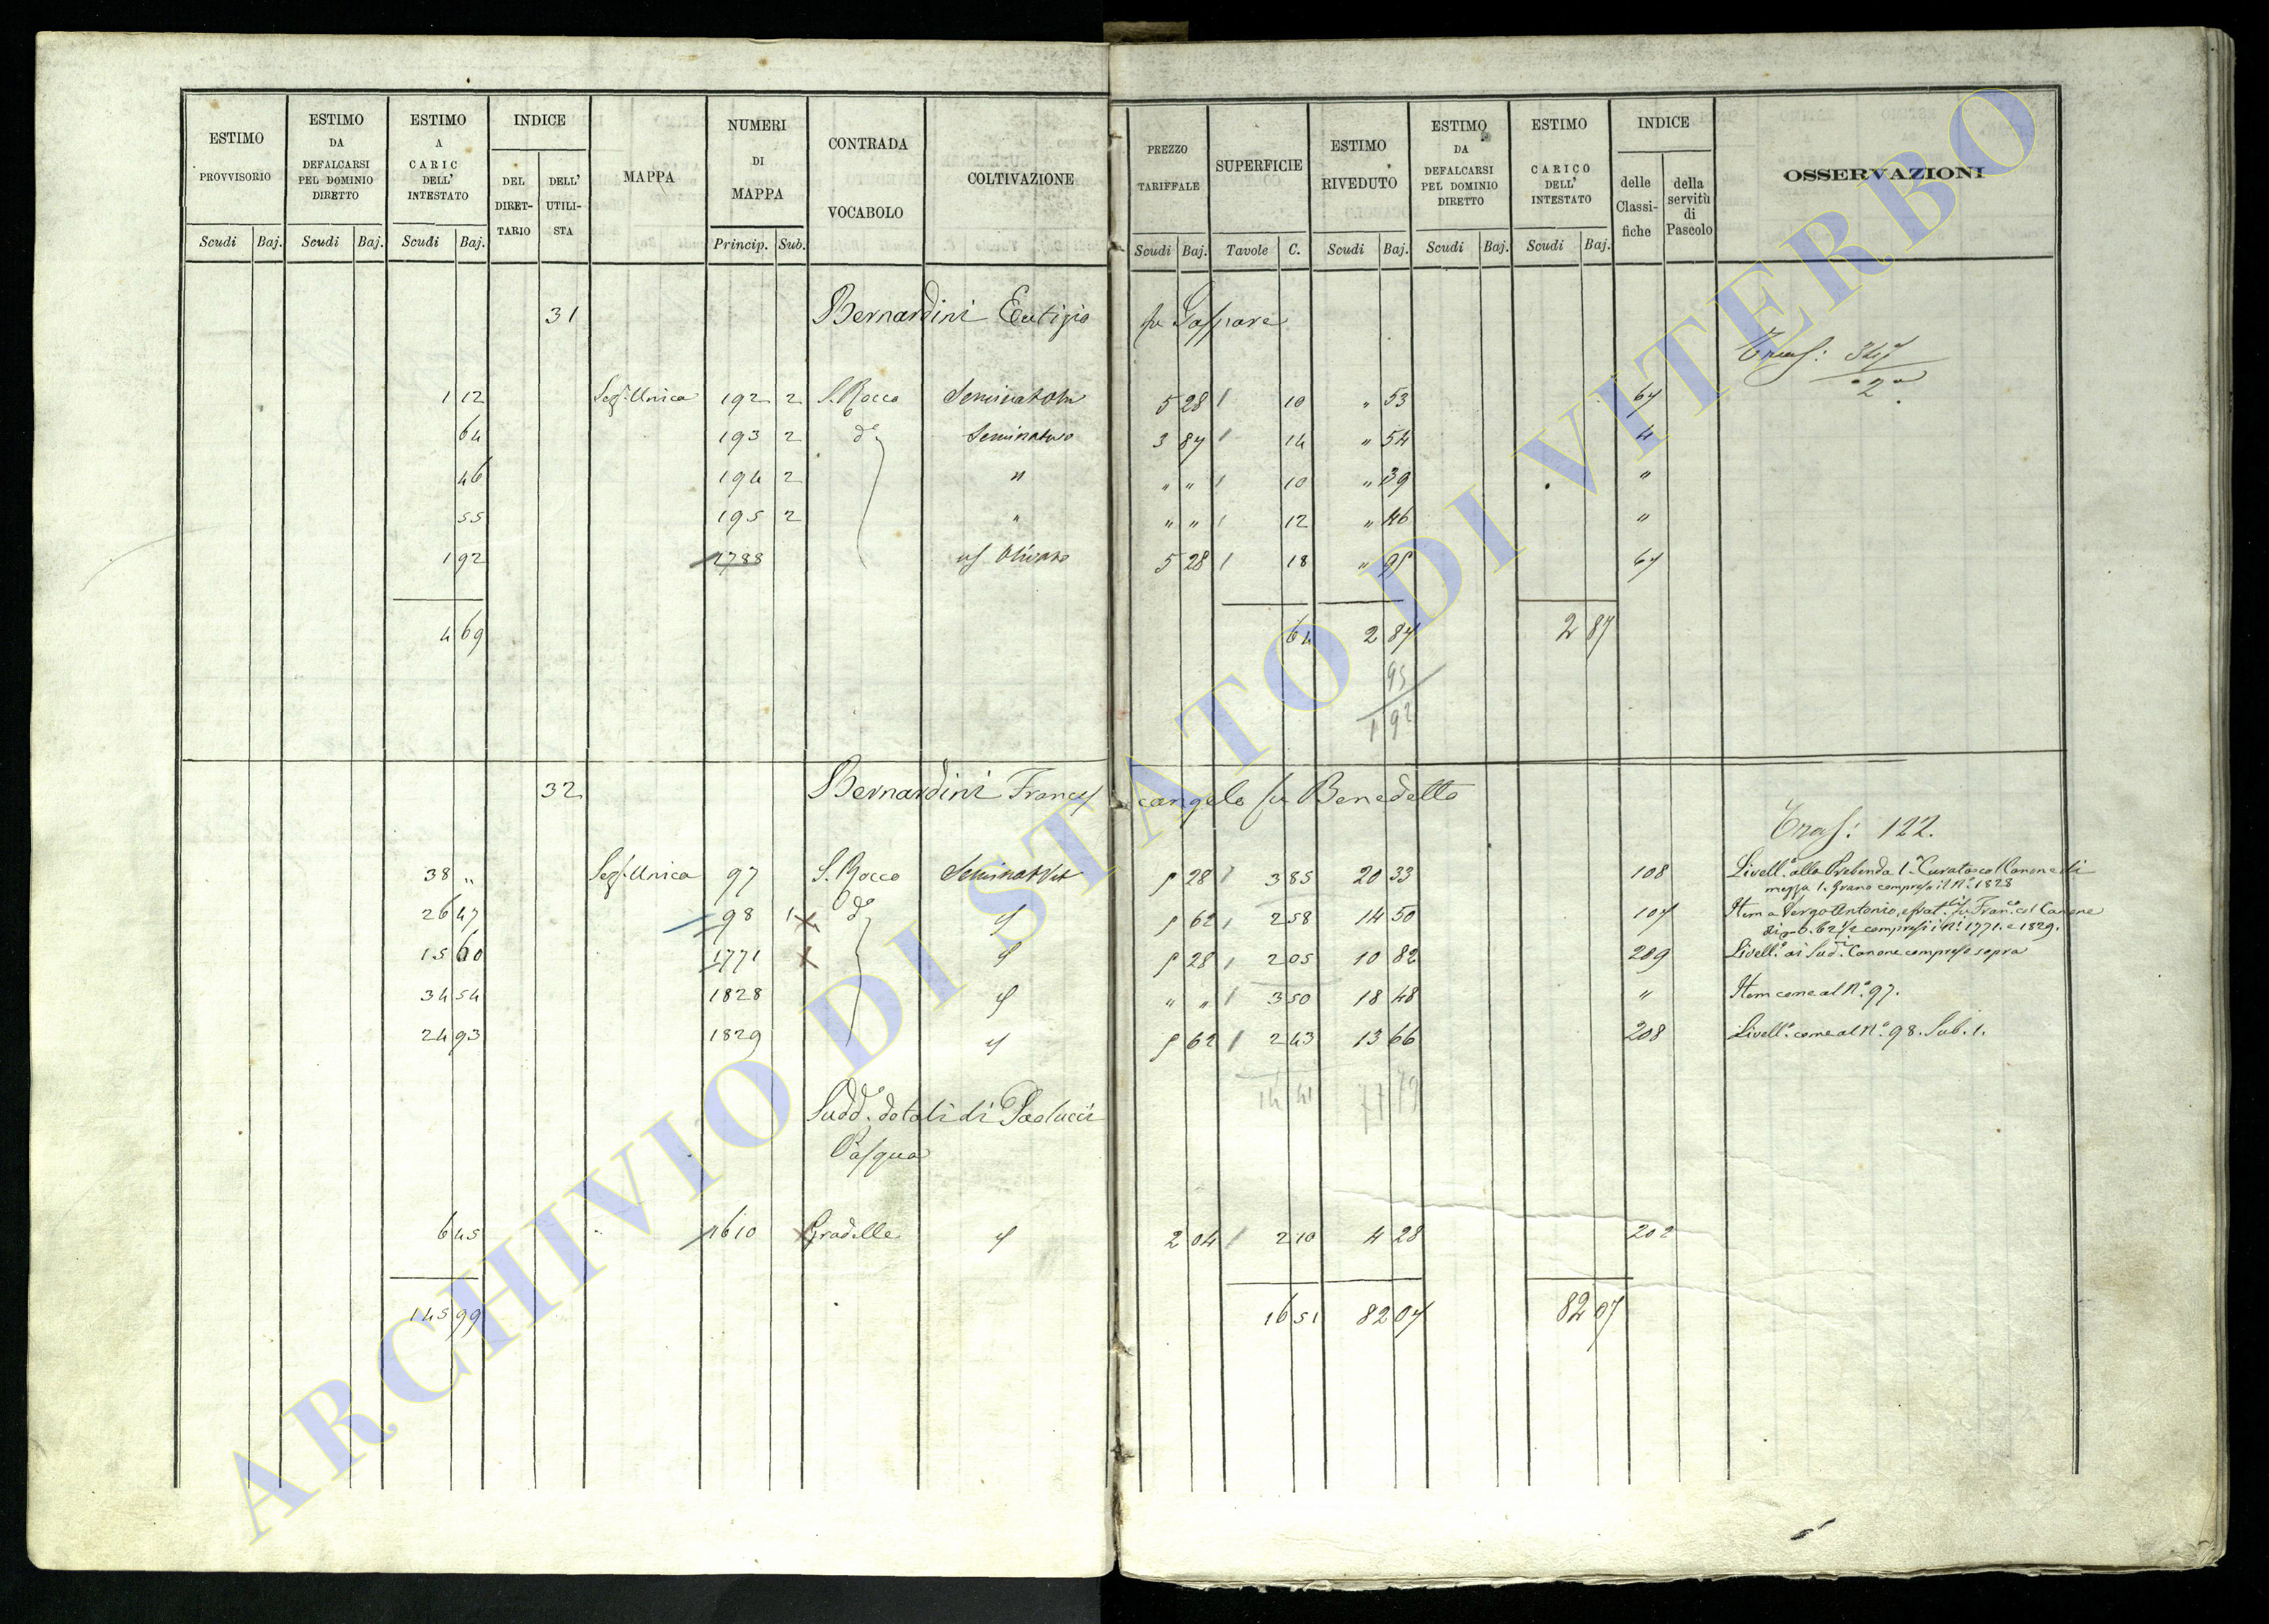 ESTIMO PROVVISORIO
ESTIMO DA DEFALCARSI PEL DOMINIO DIRETTO
ESTIMO A CARIC DELL' INTESTATO
INDICE
DEL DIRET- TARIO
DELL' UTILI- STA
MAPPA
NUMERI DI MAPPA
CONTRADA VOCABOLO
COLTIVAZIONE
PREZZO TARIFFALE
SUPERFICIE
ESTIMO RIVEDUTO
ESTIMO DA DEFALCARSI PEL DOMINIO DIRETTO
ESTIMO CARICO DELL' INTESTATO
INDICE
delle Classi- fiche
della servitù di Pascolo
OSSERVAZIONI
Scudi Baj. Scudi Baj. Scudi Baj. Princip. Sub. Scudi Baj. Tavole C. Scudi Baj. Scudi Baj. Scudi Baj.
31 Bernardini Eutizio fu Gaspare
Tras:
1 12 Sez. Unica 192 2 S. Rocco 5 28 10 " 53 67
64 193 2 do Seminativo 3 87 14 " 54 4
46 194 2 " " " 10 " 39 "
55 195 2 " " " 12 " 46 "
1 92 1788 5 28 18 " 95 67
4 69 64 2 87 2 87
95
1 92
32 Bernardini Francescangelo fu Benedetto
Tras: 122.
38 " Sez. Unica 97 S. Rocco 5 28 3 85 20 33 108 Livell.o alla Prebenda 1.a Curata col Canone di
mezza 1. grano compreso il No. 1828
26 47 98 1 do 5 62 2 58 14 50 107 Item a Vergo Antonio, e frat.lli fu Fran.co col Canone
62 1/2 compresi i Ni. 1771. e 1829.
15 60 1771 5 28 2 05 10 82 209 Livell.o ai Sud.i Canone compreso sopra
34 54 1828 " " 3 50 18 48 " Item come al No. 97.
24 93 1829 5 62 2 43 13 66 208 Livell.o come al No. 98. Sub. 1.
14 41 77 79
Sudd.o dotali di Paolucci
Pasqua
6 45 1610 Gradelle 2 04 2 10 4 28 202
145 99 16 51 82 07 82 07
ARCHIVIO DI STATO DI VITERBO